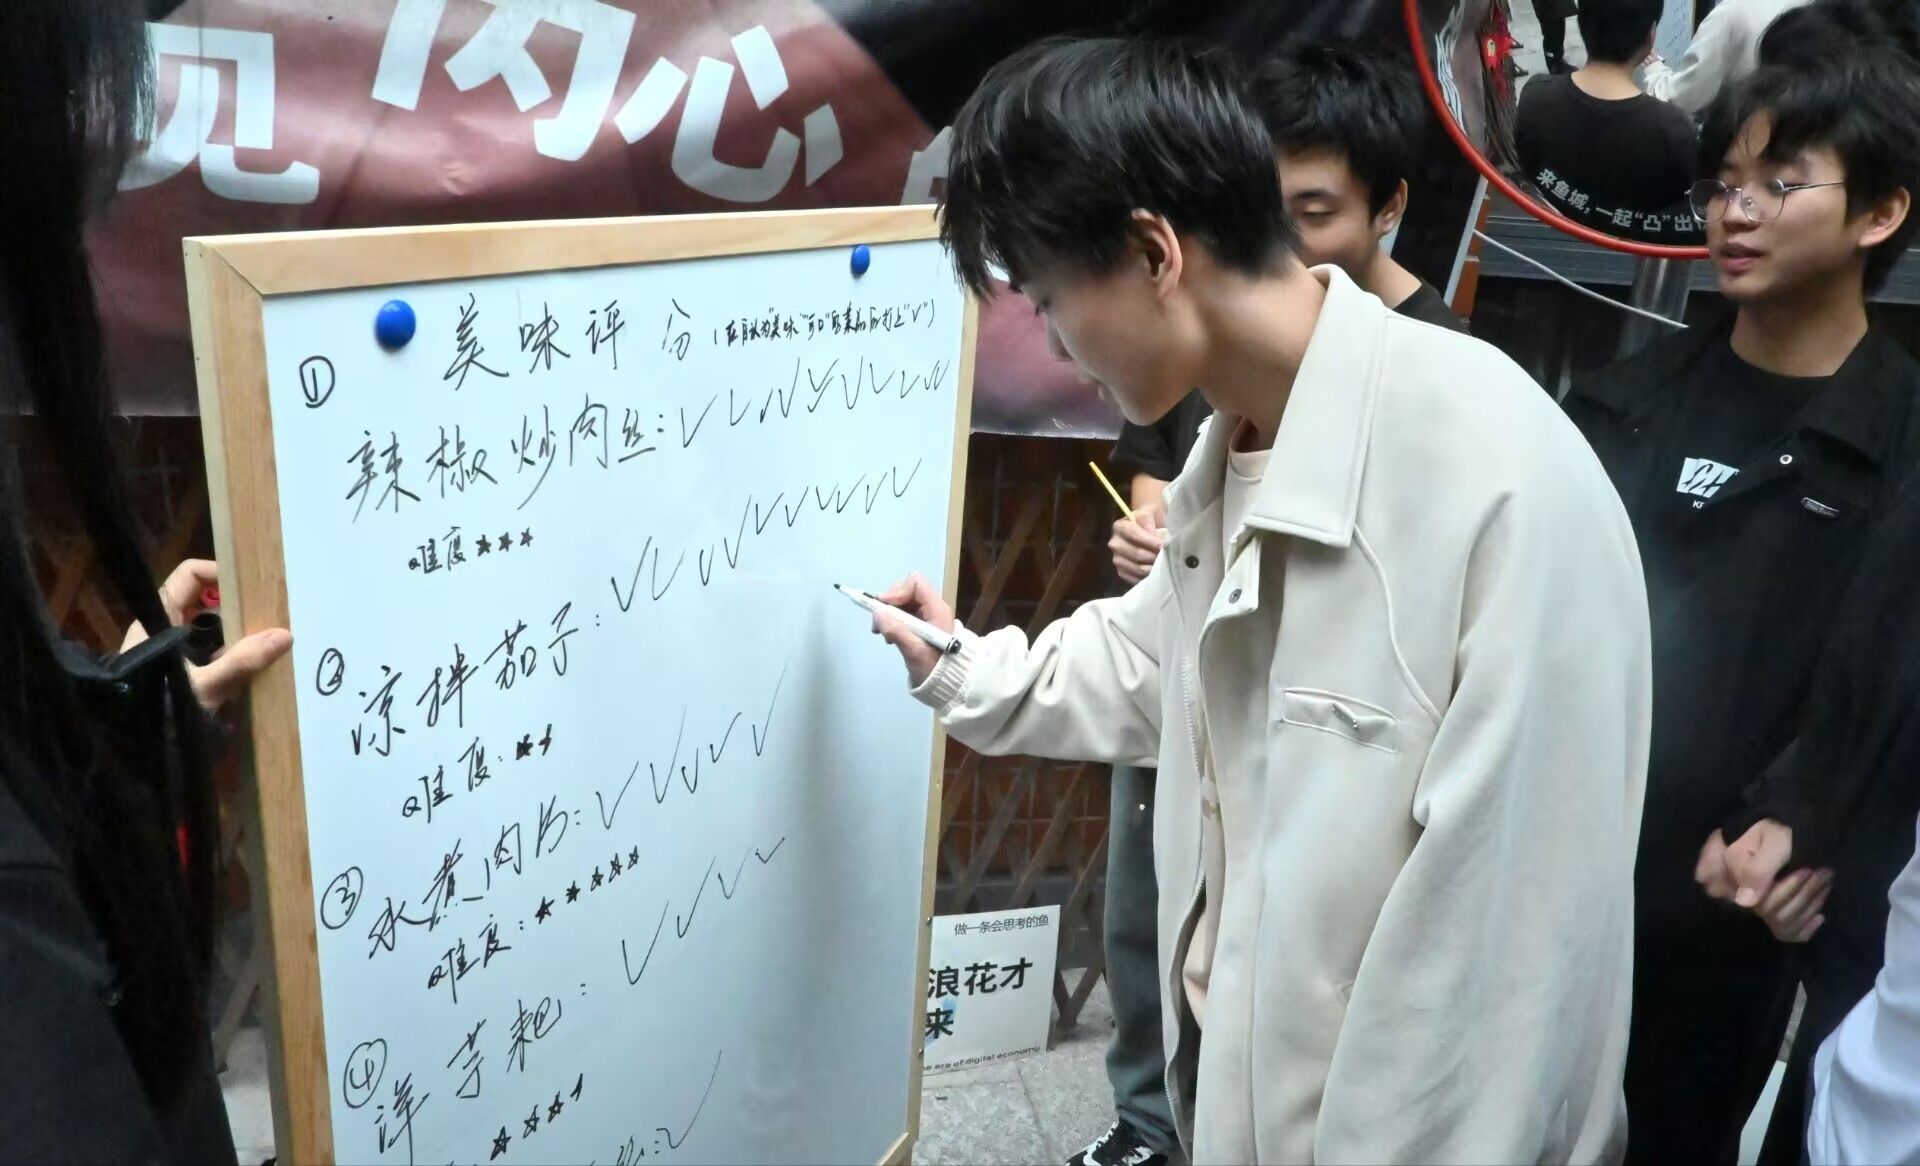 见内心
美味评分（在自认为"美味""可口"的菜品后打上"√"）
① 辣椒炒肉丝：√√√√√√√√√√
难度★★★
② 凉拌茄子：√√√√√√√√√√√
难度：★★
③ 水煮肉片：√√√√√
难度：★★★★★
④ 洋芋粑：√√√√
★★★★
来鱼城，一起"凸"出
做一条会思考的鱼
浪花才
来
era of digital economy